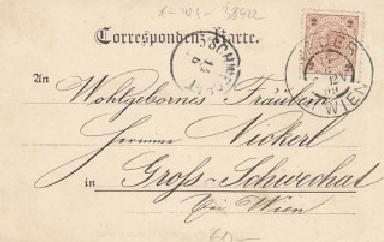 K-W1-38422
Correspondenz-Karte.
2 2
SCHWECHAT
WIEN
An
Wohlgebornes Fräulein
Hermine Nickerl
in Groß-Schwechat
bei Wien
60-